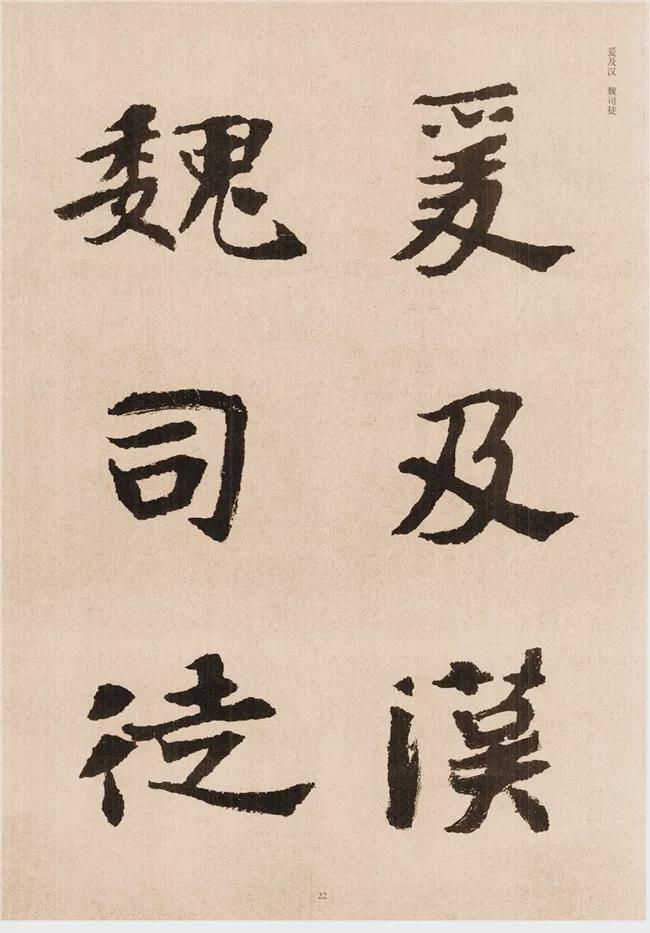 爰及汉 魏司徒
爰及漢
魏司徒
22